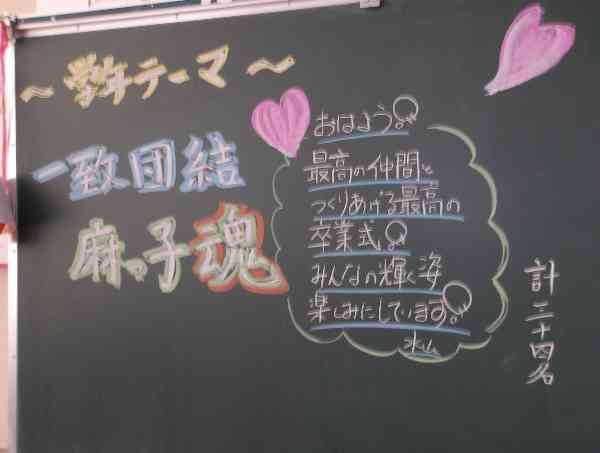 ～学年テーマ～
一致団結
麻っ子魂
おはよう。
最高の仲間と
つくりあげる最高の
卒業式
みんなの輝く姿
楽しみにしています。
計三十四名